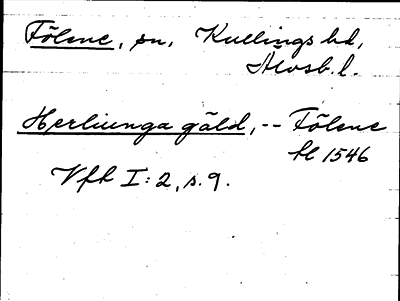 Fölene, sn, Kullings hd,
Älvsb. l.
Herliunga gäld, -- Fölene
hl 1546
Vfh I:2, s. 9.